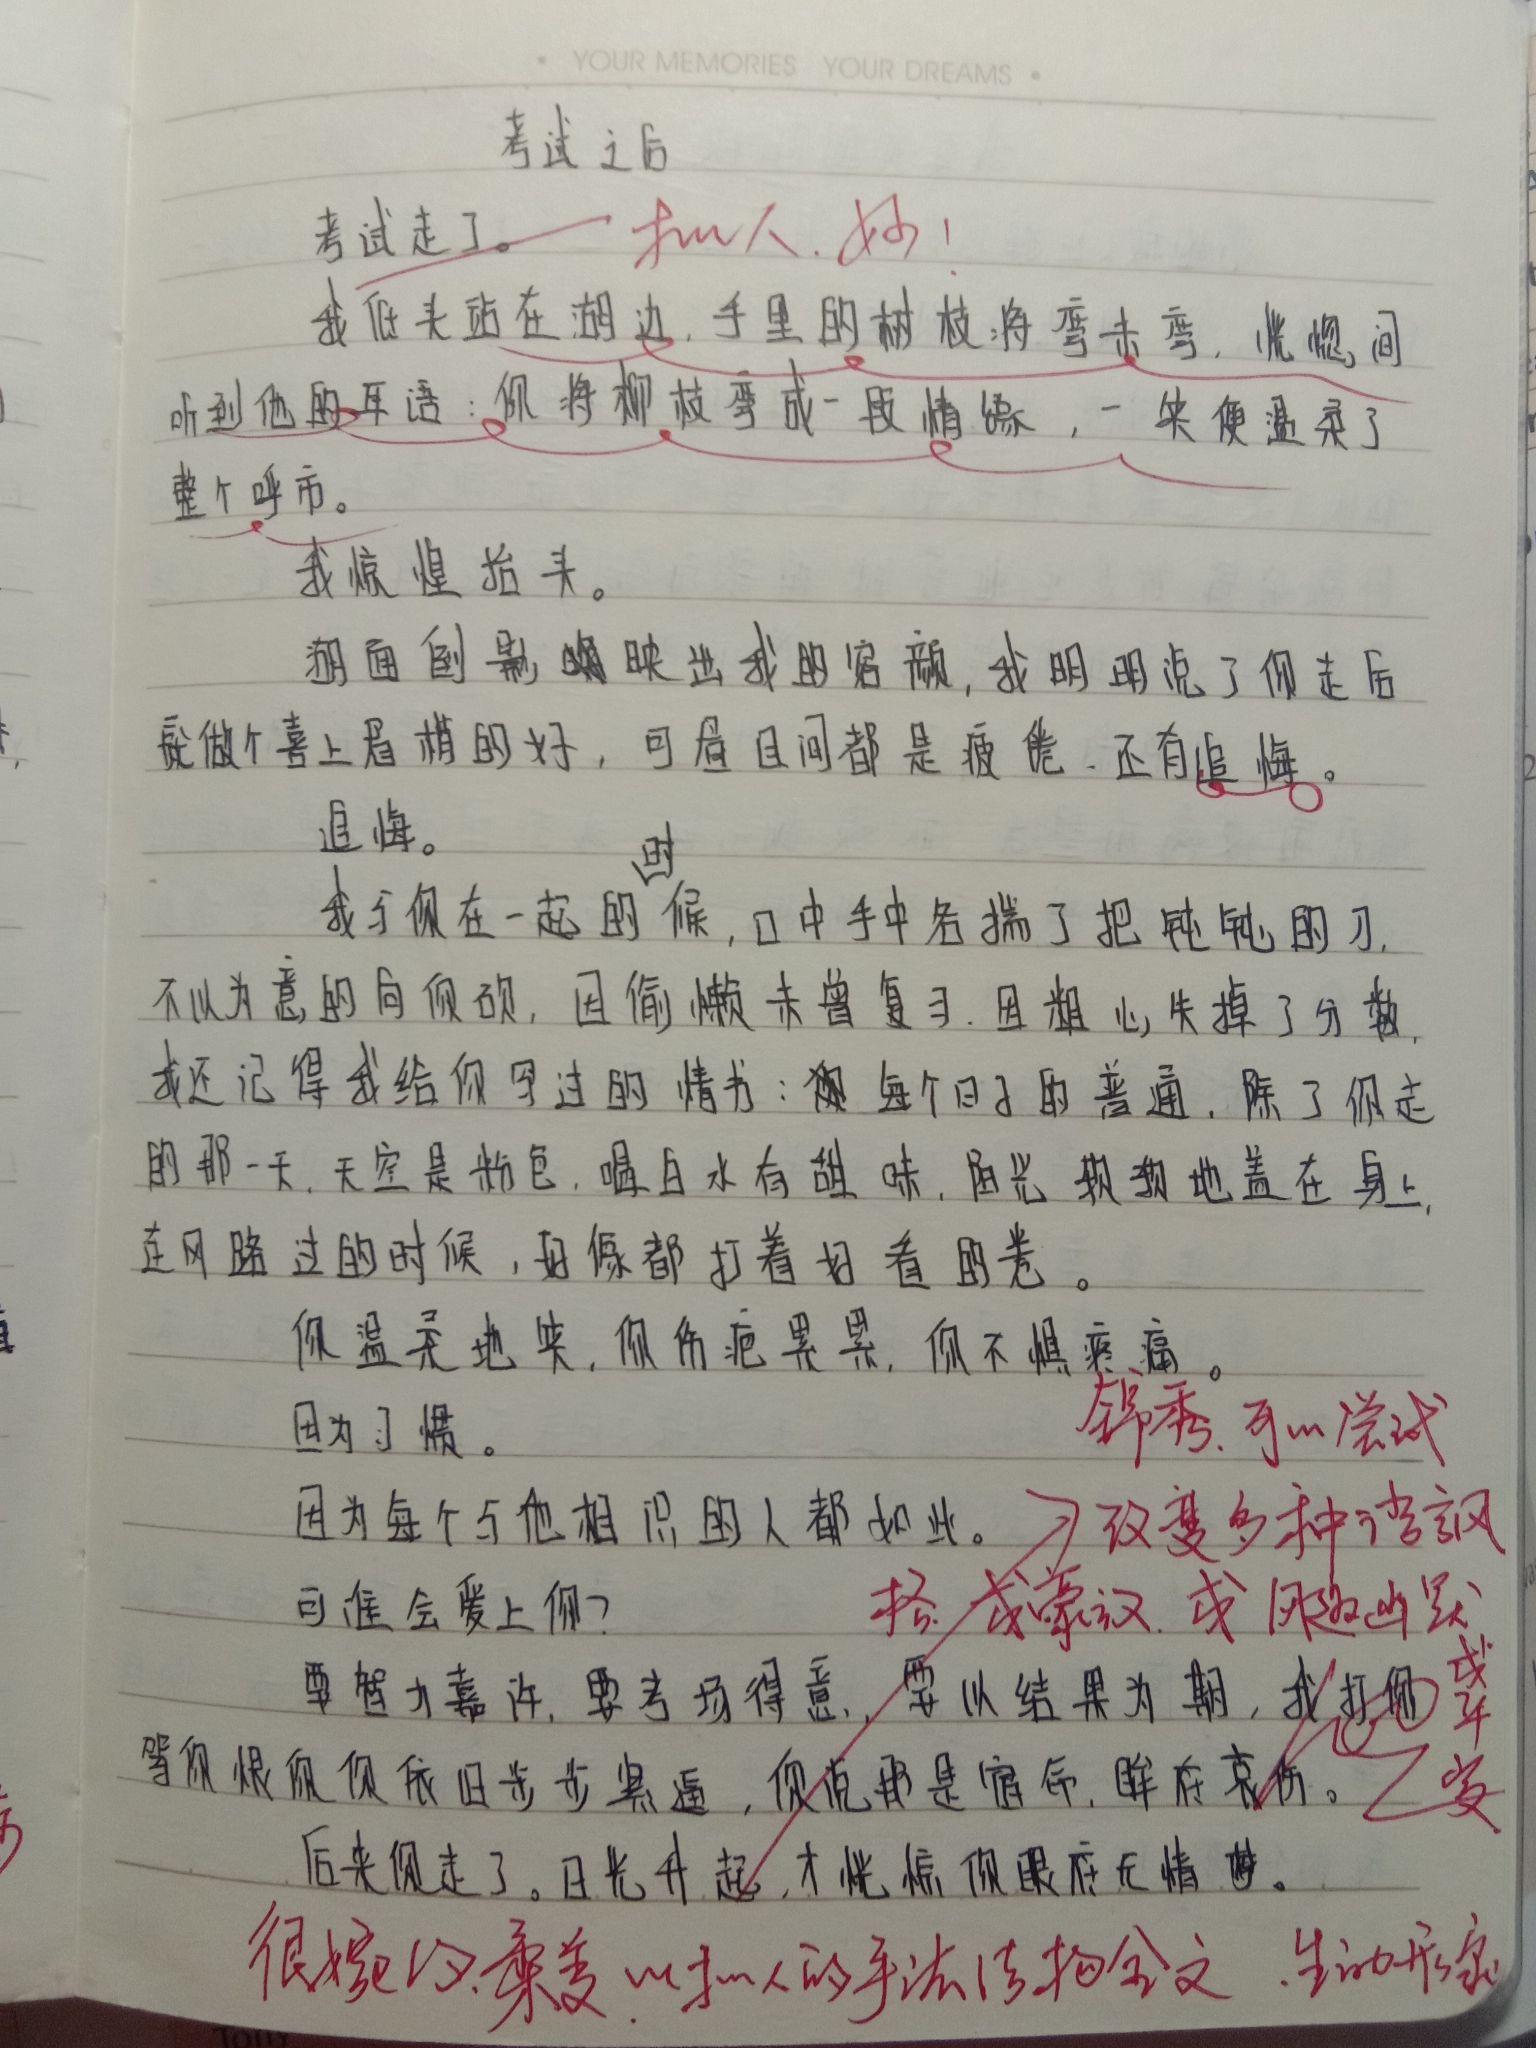 • YOUR MEMORIES YOUR DREAMS •
考试之后
考试走了。
拟人.妙！
我低头站在湖边,手里的树枝将弯未弯,恍惚间
听到他的耳语:你将柳枝弯成一段情缘,一笑便温柔了
整个呼市。
我惊惶抬头。
湖面倒影映出我的容颜,我明明说了你走后
就做个喜上眉梢的好,可眉目间都是疲倦.还有追悔。
追悔。
我与你在一起的时候,口中手中各揣了把钝钝的刀,
不以为意的向你砍,因偷懒未曾复习.因粗心失掉了分数,
我还记得我给你写过的情书:每个日子的普通,除了你走
的那一天,天空是粉色,喝白水有甜味,阳光软软地盖在身上,
在风路过的时候,好像都打着好看的卷。
你温柔地笑,你伤疤累累,你不惧疼痛。
因为习惯。
锦秀.可以尝试
因为每个与他相识的人都如此。
改变多种语言风
可谁会爱上你?
格.或豪放.或风趣幽默
或辛
要智力嘉许,要考场得意,要以结果为期,我打你
骂你恨你你依旧步步紧逼,你说那是宿命,眸底哀伤。
后来你走了。日光升起,才恍惊你眼底无情。
很婉约柔美.以拟人的手法结构全文.生动形象
Tony